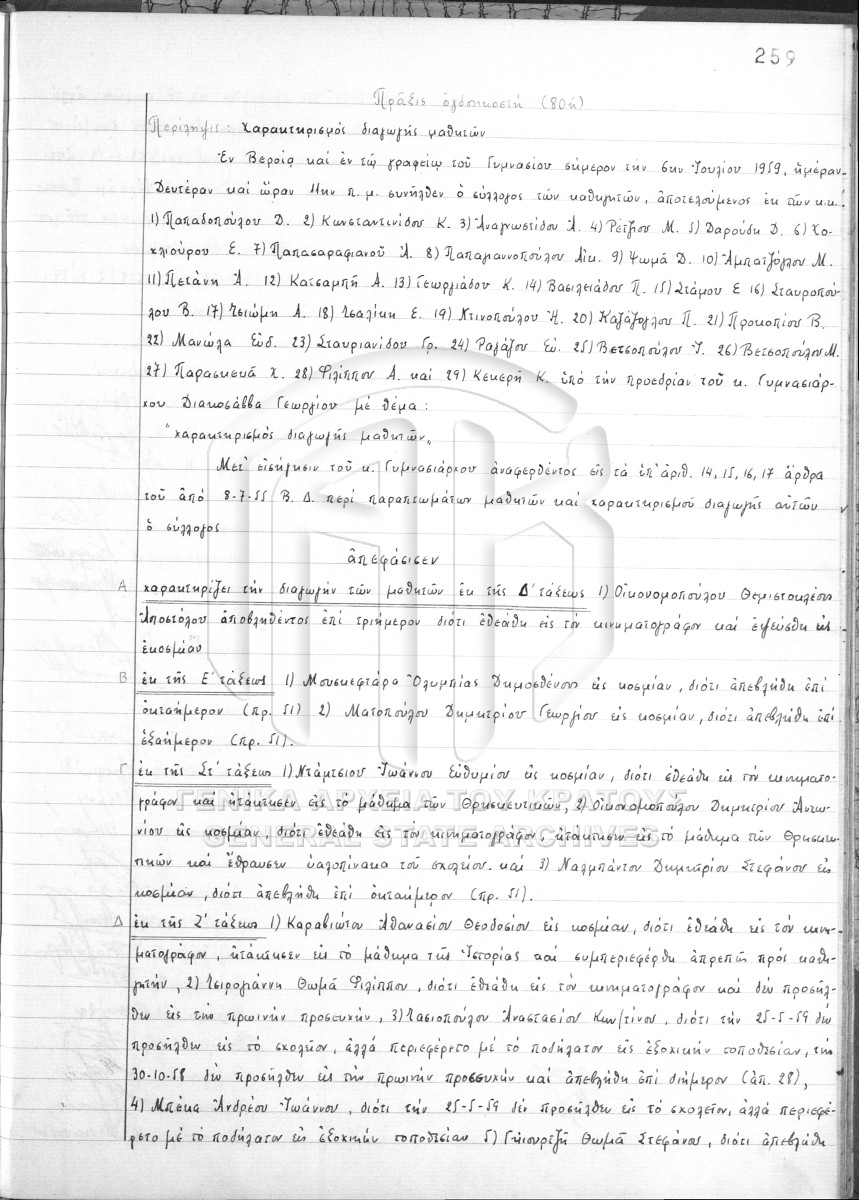 259
Πρᾶξις ὀγδοηκοστή (80ή)
Περίληψις: Χαρακτηρισμός διαγωγῆς μαθητῶν
Ἐν Βεροίᾳ καί ἐν τῷ γραφείῳ τοῦ Γυμνασίου σήμερον τήν 6ην Ἰουλίου 1959, ἡμέραν
Δευτέραν καί ὥραν 11ην π.μ. συνῆλθεν ὁ σύλλογος τῶν καθηγητῶν, ἀποτελούμενος ἐκ τῶν κ.κ.
1) Παπαδοπούλου Δ. 2) Κωνσταντινίδου Κ. 3) Ἀναγνωστίδου Ἀ. 4) Ρέτζιου Μ. 5) Δαρούδη Δ. 6) Χο-
κλιούρου Ε. 7) Παπασαραφιανοῦ Ἀ. 8) Παπαγιαννοπούλου Αἰκ. 9) Ψωμᾶ Δ. 10) Ἀμπατζόγλου Μ.
11) Πετάνη Ἀ. 12) Κατσαμπῆ Α. 13) Γεωργιάδου Κ. 14) Βασιλειάδου Π. 15) Στάμου Ε 16) Σταυροπού-
λου Β. 17) Τσιώμη Α. 18) Τσαλίκη Ε. 19) Ντινοπούλου Ἠ. 20) Καζάζογλου Π. 21) Προκοπίου Β.
22) Μανώλα Εὐδ. 23) Σταυριανίδου Γρ. 24) Ραγάζου Εὐ. 25) Βετσοπούλου Ἰ. 26) Βετσοπούλου Μ.
27) Παρασκευᾶ Χ. 28) Φιλίππου Α. καί 29) Κεκερῆ Κ. ὑπό τήν προεδρίαν τοῦ κ. Γυμνασιάρ-
χου Διακοσάββα Γεωργίου μέ θέμα:
"χαρακτηρισμός διαγωγῆς μαθητῶν"
Μετ' εἰσήγησιν τοῦ κ. Γυμνασιάρχου ἀναφερθέντος εἰς τά ὑπ' ἀριθ. 14, 15, 16, 17 ἄρθρα
τοῦ ἀπό 8-7-55 Β.Δ. περί παραπτωμάτων μαθητῶν καί χαρακτηρισμοῦ διαγωγῆς αὐτῶν
ὁ σύλλογος
ἀπεφάσισεν
Α χαρακτηρίζει τήν διαγωγήν τῶν μαθητῶν ἐκ τῆς Δ' τάξεως 1) Οἰκονομοπούλου Θεμιστοκλέους
Ἀποστόλου ἀποβληθέντος ἐπί τριήμερον διότι ἐθεάθη εἰς τόν κινηματογράφον καί ἐψεύσθη ὡς
κοσμίαν
Β ἐκ τῆς Ε' τάξεως 1) Μουσκεφτάρα Ὀλυμπίας Δημοσθένους ὡς κοσμίαν, διότι ἀπεβλήθη ἐπί
ὀκταήμερον (πρ. 51) 2) Ματοπούλου Δημητρίου Γεωργίου εἰς κοσμίαν, διότι ἀπεβλήθη ἐπί
ἑξαήμερον (πρ. 51).
Γ ἐκ τῆς Στ' τάξεως 1) Ντάμτσιου Ἰωάννου Εὐθυμίου ὡς κοσμίαν, διότι ἐθεάθη εἰς τόν κινηματο-
γράφον καί ἠτάκτησεν εἰς τό μάθημα τῶν Θρησκευτικῶν, 2) Οἰκονομοπούλου Δημητρίου Ἀντω-
νίου ὡς κοσμίαν, διότι ἐθεάθη εἰς τόν κινηματογράφον, ἠτάκτησεν εἰς τό μάθημα τῶν Θρησκευ-
τικῶν καί ἔθραυσεν ὑαλοπίνακα τοῦ σχολείου. καί 3) Ναλμπάντου Δημητρίου Στεφάνου εἰς
κοσμίαν, διότι ἀπεβλήθη ἐπί ὀκταήμερον (πρ. 51).
Δ ἐκ τῆς Ζ' τάξεως 1) Καραβιώτου Ἀθανασίου Θεοδοσίου εἰς κοσμίαν, διότι ἐθεάθη εἰς τόν κινη-
ματογράφον, ἠτάκτησεν εἰς τό μάθημα τῆς Ἱστορίας καί συμπεριεφέρθη ἀπρεπῶς πρός καθη-
γητήν, 2) Τσιρογιάννη Θωμᾶ Φιλίππου, διότι ἐθεάθη εἰς τόν κινηματογράφον καί δέν προσῆλ-
θεν εἰς τήν πρωινήν προσευχήν, 3) Τασιοπούλου Ἀναστασίου Κων/τίνου, διότι τήν 25-5-59 δέν
προσῆλθεν εἰς τό σχολεῖον, ἀλλά περιεφέρετο μέ τό ποδήλατον εἰς ἐξοχικήν τοποθεσίαν, τήν
30-10-58 δέν προσῆλθεν εἰς τήν πρωινήν προσευχήν καί ἀπεβλήθη ἐπί διήμερον (ἀπ. 28),
4) Μπέκα Ἀνδρέου Ἰωάννου, διότι τήν 25-5-59 δέν προσῆλθεν εἰς τό σχολεῖον, ἀλλά περιεφέ-
ρετο μέ τό ποδήλατον εἰς ἐξοχικήν τοποθεσίαν 5) Γκιουρτζῆ Θωμᾶ Στεφάνου, διότι ἀπεβλήθη
ΓΕΝΙΚΑ ΑΡΧΕΙΑ ΤΟΥ ΚΡΑΤΟΥΣ
GENERAL STATE ARCHIVES